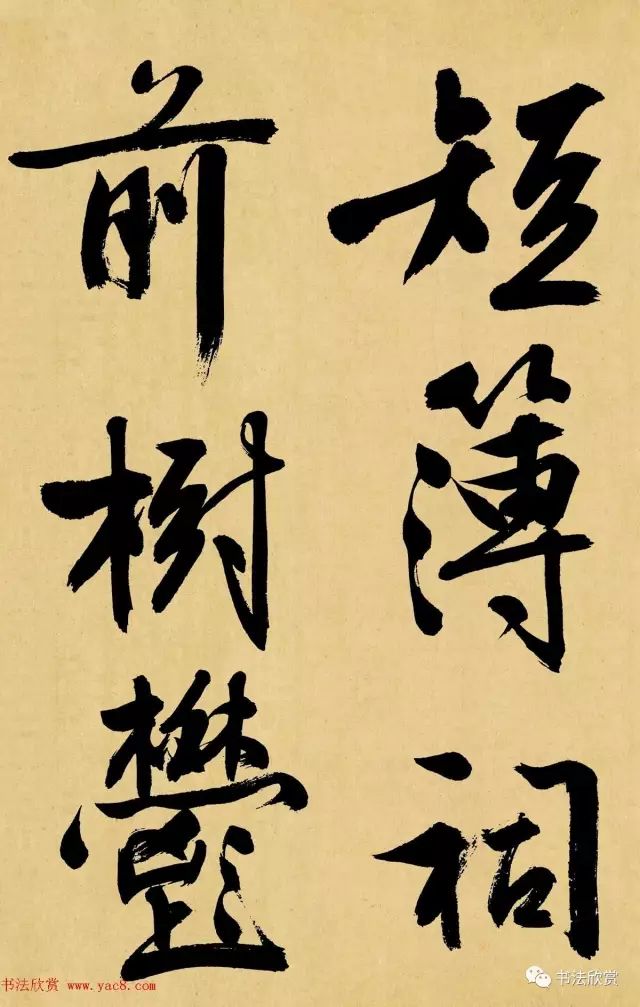 短簿祠
前樹鬱
书法欣赏 www.yac8.com
书法欣赏